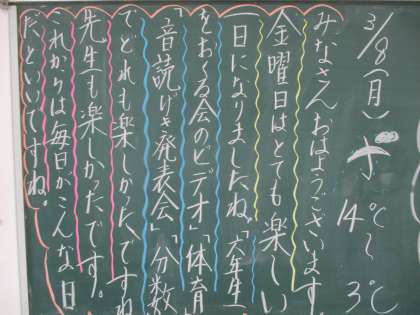 3/8(月)
14℃〜3℃
みなさんおはようございます。
金曜日はとても楽しい
一日になりましたね。「六年生
をおくる会のビデオ」「体育」
「音読げき発表会」「分数」
でどれも楽しかったですね
先生も楽しかったです。
これからは毎日がこんな日
だといいですね。